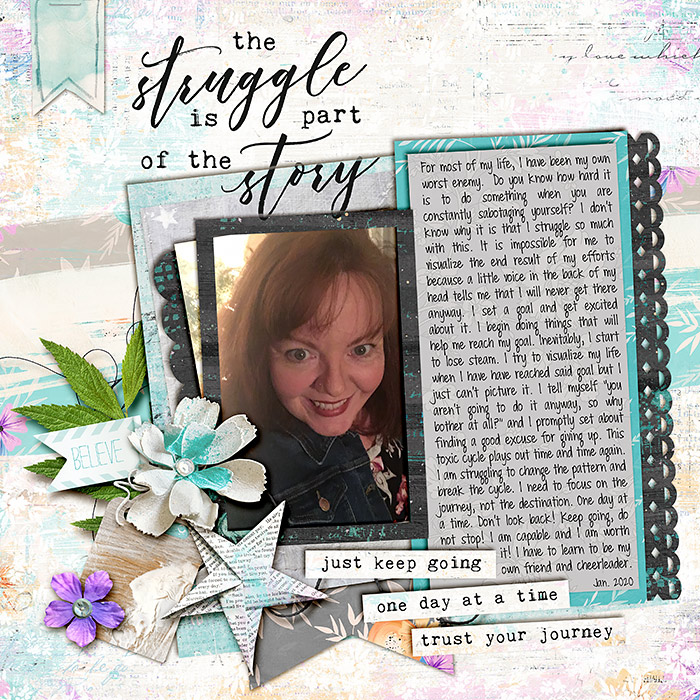 the
struggle
is part
of the
story
y love which
For most of my life, I have been my own
worst enemy. Do you know how hard it
is to do something when you are
constantly sabotaging yourself? I don't
know why it is that I struggle so much
with this. It is impossible for me to
visualize the end result of my efforts
because a little voice in the back of my
head tells me that I will never get there
anyway. I set a goal and get excited
about it. I begin doing things that will
help me reach my goal. Inevitably, I start
to lose steam. I try to visualize my life
when I have have reached said goal but I
just can't picture it. I tell myself "you
aren't going to do it anyway, so why
bother at all?" and I promptly set about
finding a good excuse for giving up. This
toxic cycle plays out time and time again.
I am struggling to change the pattern and
break the cycle. I need to focus on the
journey, not the destination. One day at
a time. Don't look back! Keep going, do
not stop! I am capable and I am worth
it! I have to learn to be my
own friend and cheerleader.
Jan. 2020
BELIEVE
just keep going
one day at a time
trust your journey